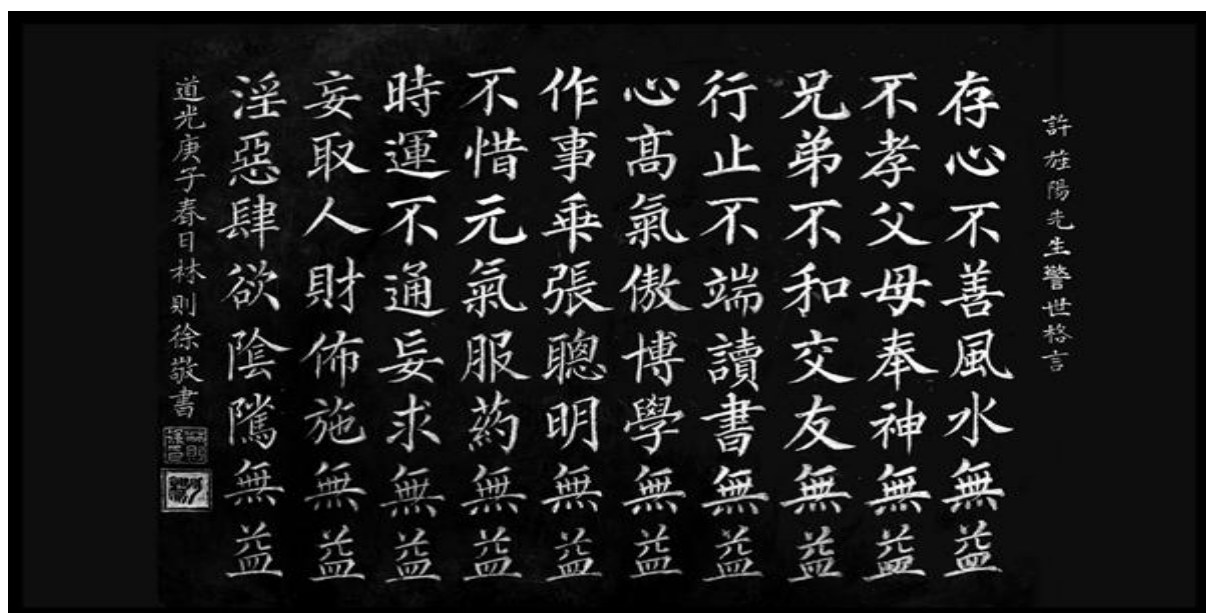 許旌陽先生警世格言
存心不善風水無益
不孝父母奉神無益
兄弟不和交友無益
行止不端讀書無益
心高氣傲博學無益
作事乖張聰明無益
不惜元氣服葯無益
時運不通妄求無益
妄取人財佈施無益
淫惡肆欲陰騭無益
道光庚子春日林則徐敬書